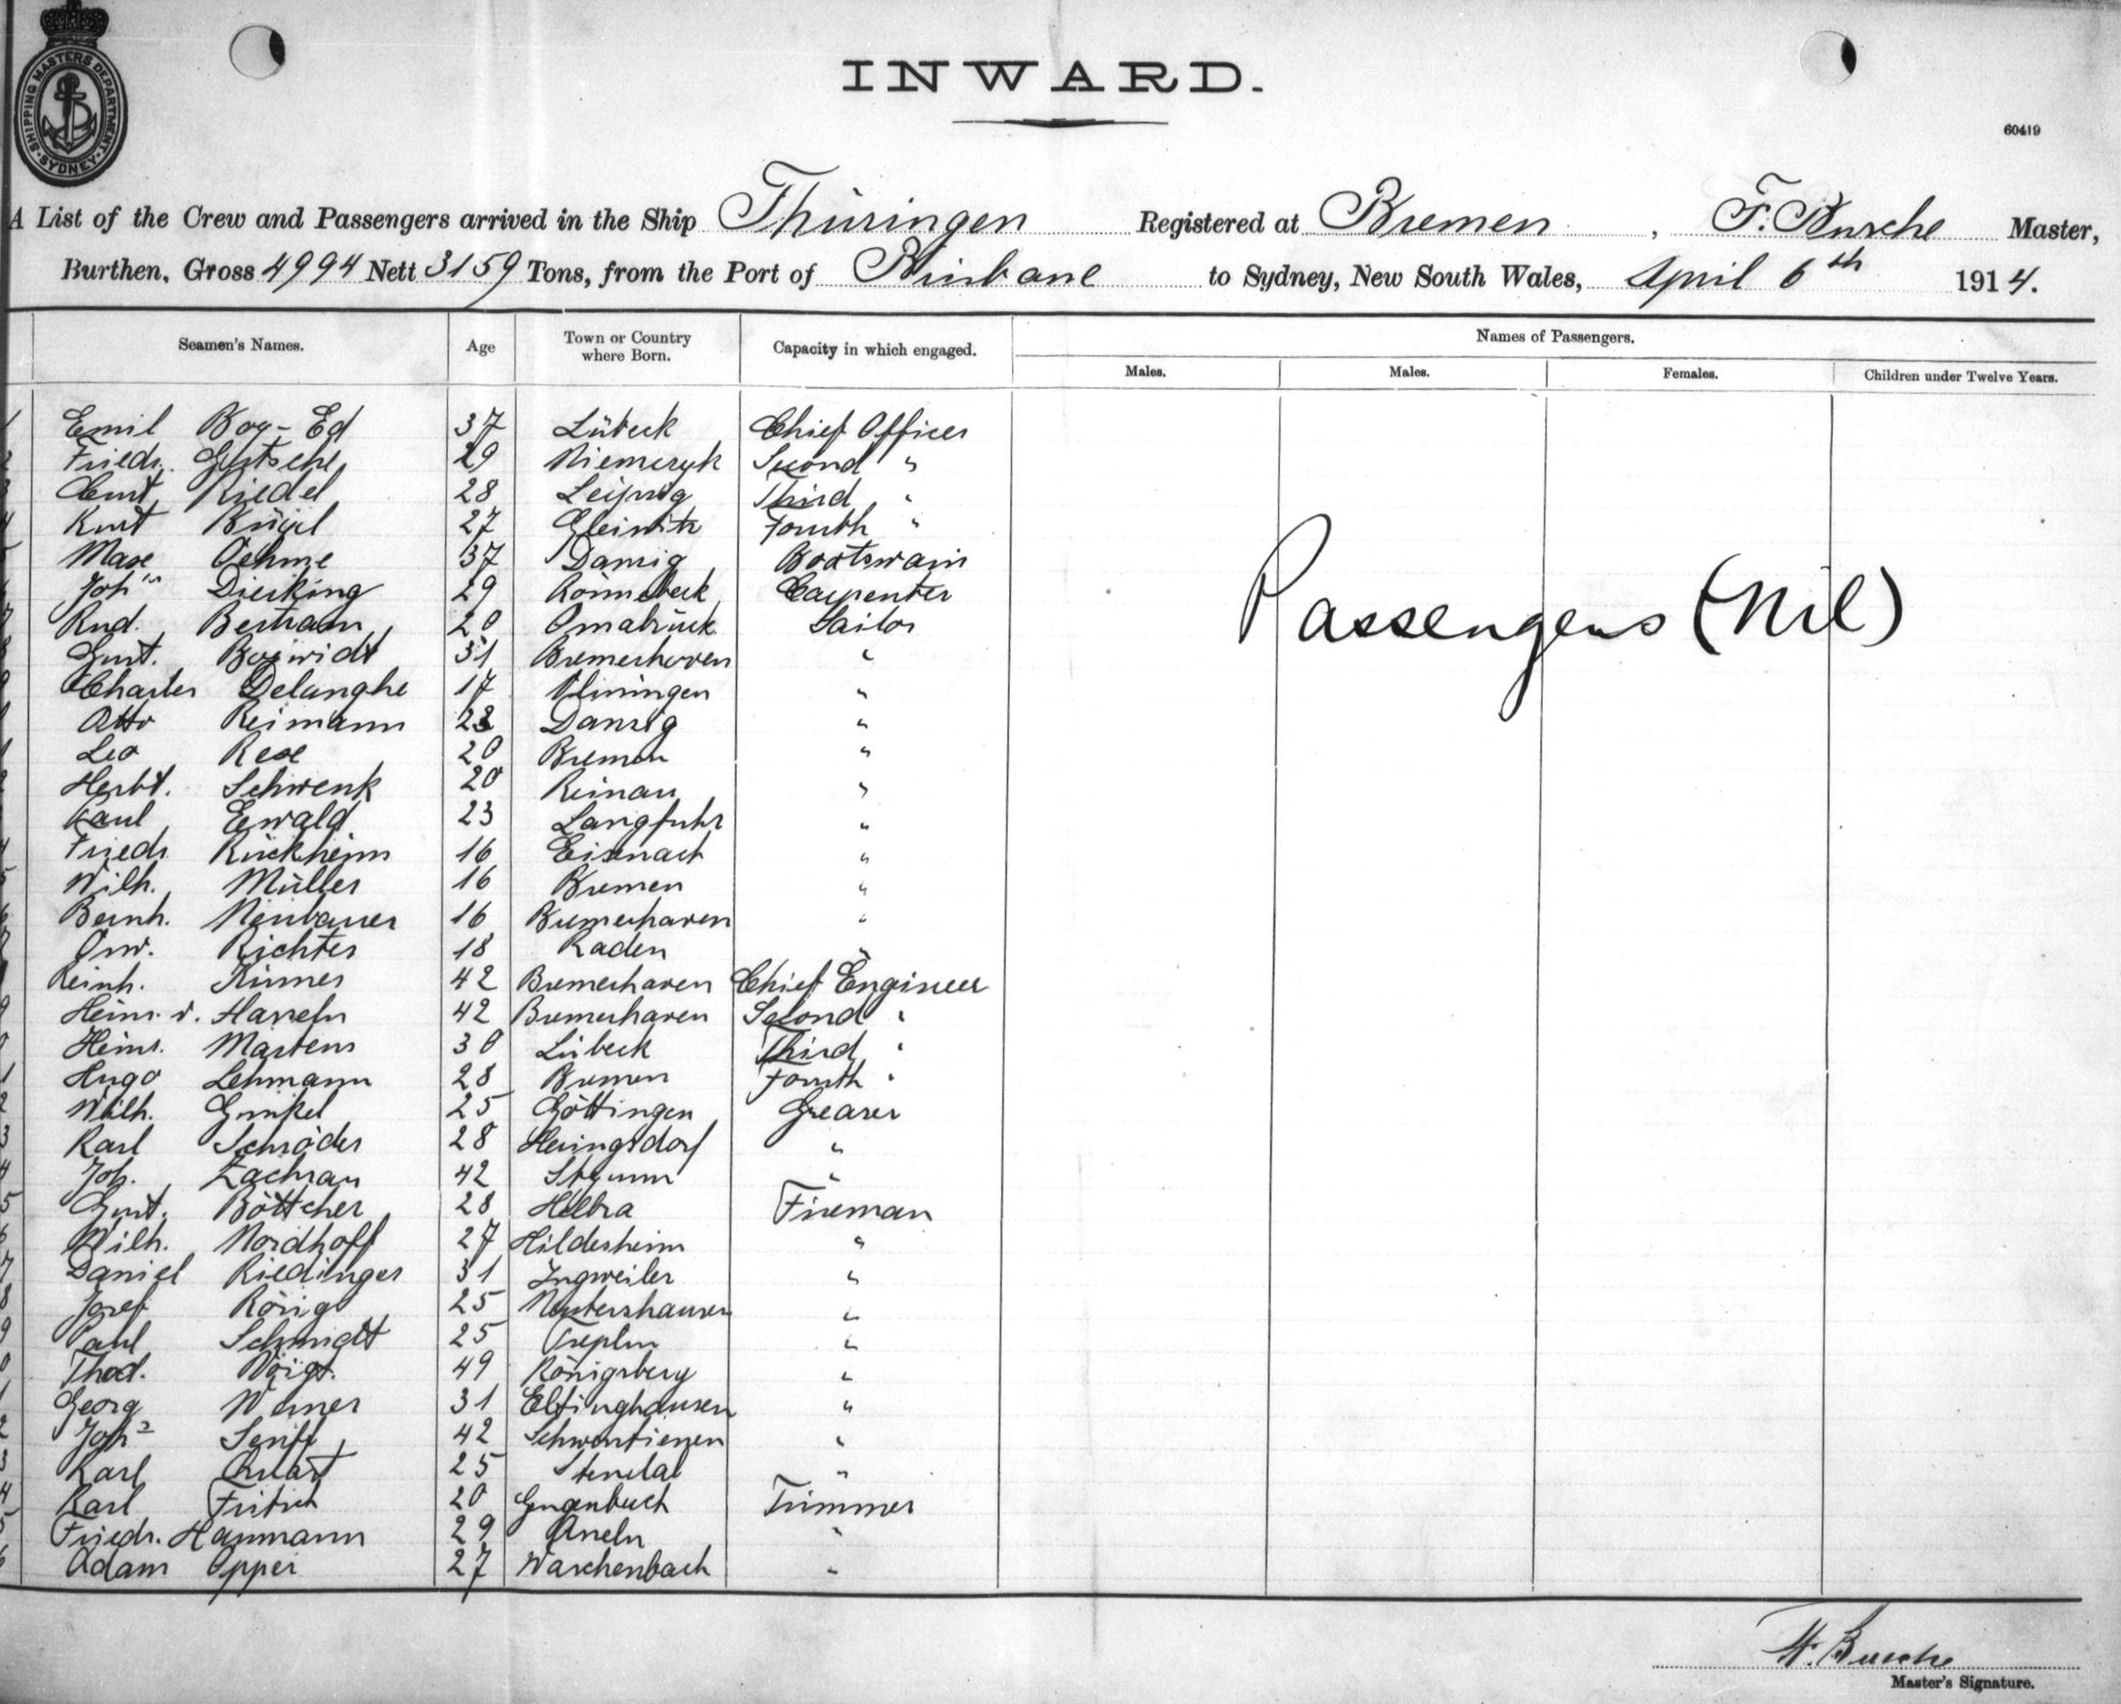 SHIPPING MASTERS DEPARTMENT SYDNEY
INWARD.
60419
A List of the Crew and Passengers arrived in the Ship Thüringen Registered at Bremen, F. Busche Master,
Burthen, Gross 4994 Nett 3159 Tons, from the Port of Brisbane to Sydney, New South Wales, April 6th 1914.
Seamen's Names. Age Town or Country where Born. Capacity in which engaged. Names of Passengers.
Males. Males. Females. Children under Twelve Years.
1 Emil Boy-Ed 37 Lübeck Chief Officer
2 Friedr. 29 Niemczyk Second "
3 Curt Riedel 28 Leipzig Third "
4 Kurt Bügel 27 Gleiwitz Fourth "
5 Max Oehme 37 Danzig Boatswain
6 Johs Dierking 29 Rönnebeck Carpenter
7 Rud. Bertram 20 Osnabrück Sailor
8 Gust. 31 Bremerhaven "
9 Charles Delanghe 17 "
Otto Reimann Danzig "
1 Leo Rese 20 Bremen "
Herbt. Schwenk 20 Reinau "
Paul Ewald 23 Langfuhr "
4 Friedr. Rückheim 16 Eisenach "
5 Wilh. Müller 16 Bremen "
6 Bernh. Neubauer 16 Bremerhaven "
7 Osw. Richter 18 Raden "
Reinh. 42 Bremerhaven Chief Engineer
9 Heinr. v. Hasseln 42 Bremerhaven Second "
0 Heinr. Martens 30 Lübeck Third "
1 Hugo Lehmann 28 Bremen Fourth "
2 Wilh. Gunkel 25 Göttingen Greaser
3 Karl Schröder 28 Heringsdorf "
4 Joh. Zachrau 42 "
5 Gust. Böttcher 28 Helbra Fireman
6 Wilh. Nordhoff 27 Hildesheim "
7 Daniel Riedinger 31 Ingweiler "
8 Josef Rörig 25 Nentershausen "
9 Paul Schmidt 25 Treplin "
0 Theod. Voigt 49 Königsberg "
1 Georg Werner 31 Elfinghausen "
2 Joh. Senff 42 "
3 Karl Quast 25 Stendal "
4 Karl Fritsch 20 Trimmer
5 Friedr. Hanmann 29 "
6 Adam Opper 27 Waschenbach "
Passengers (Nil)
Busche
Master's Signature.